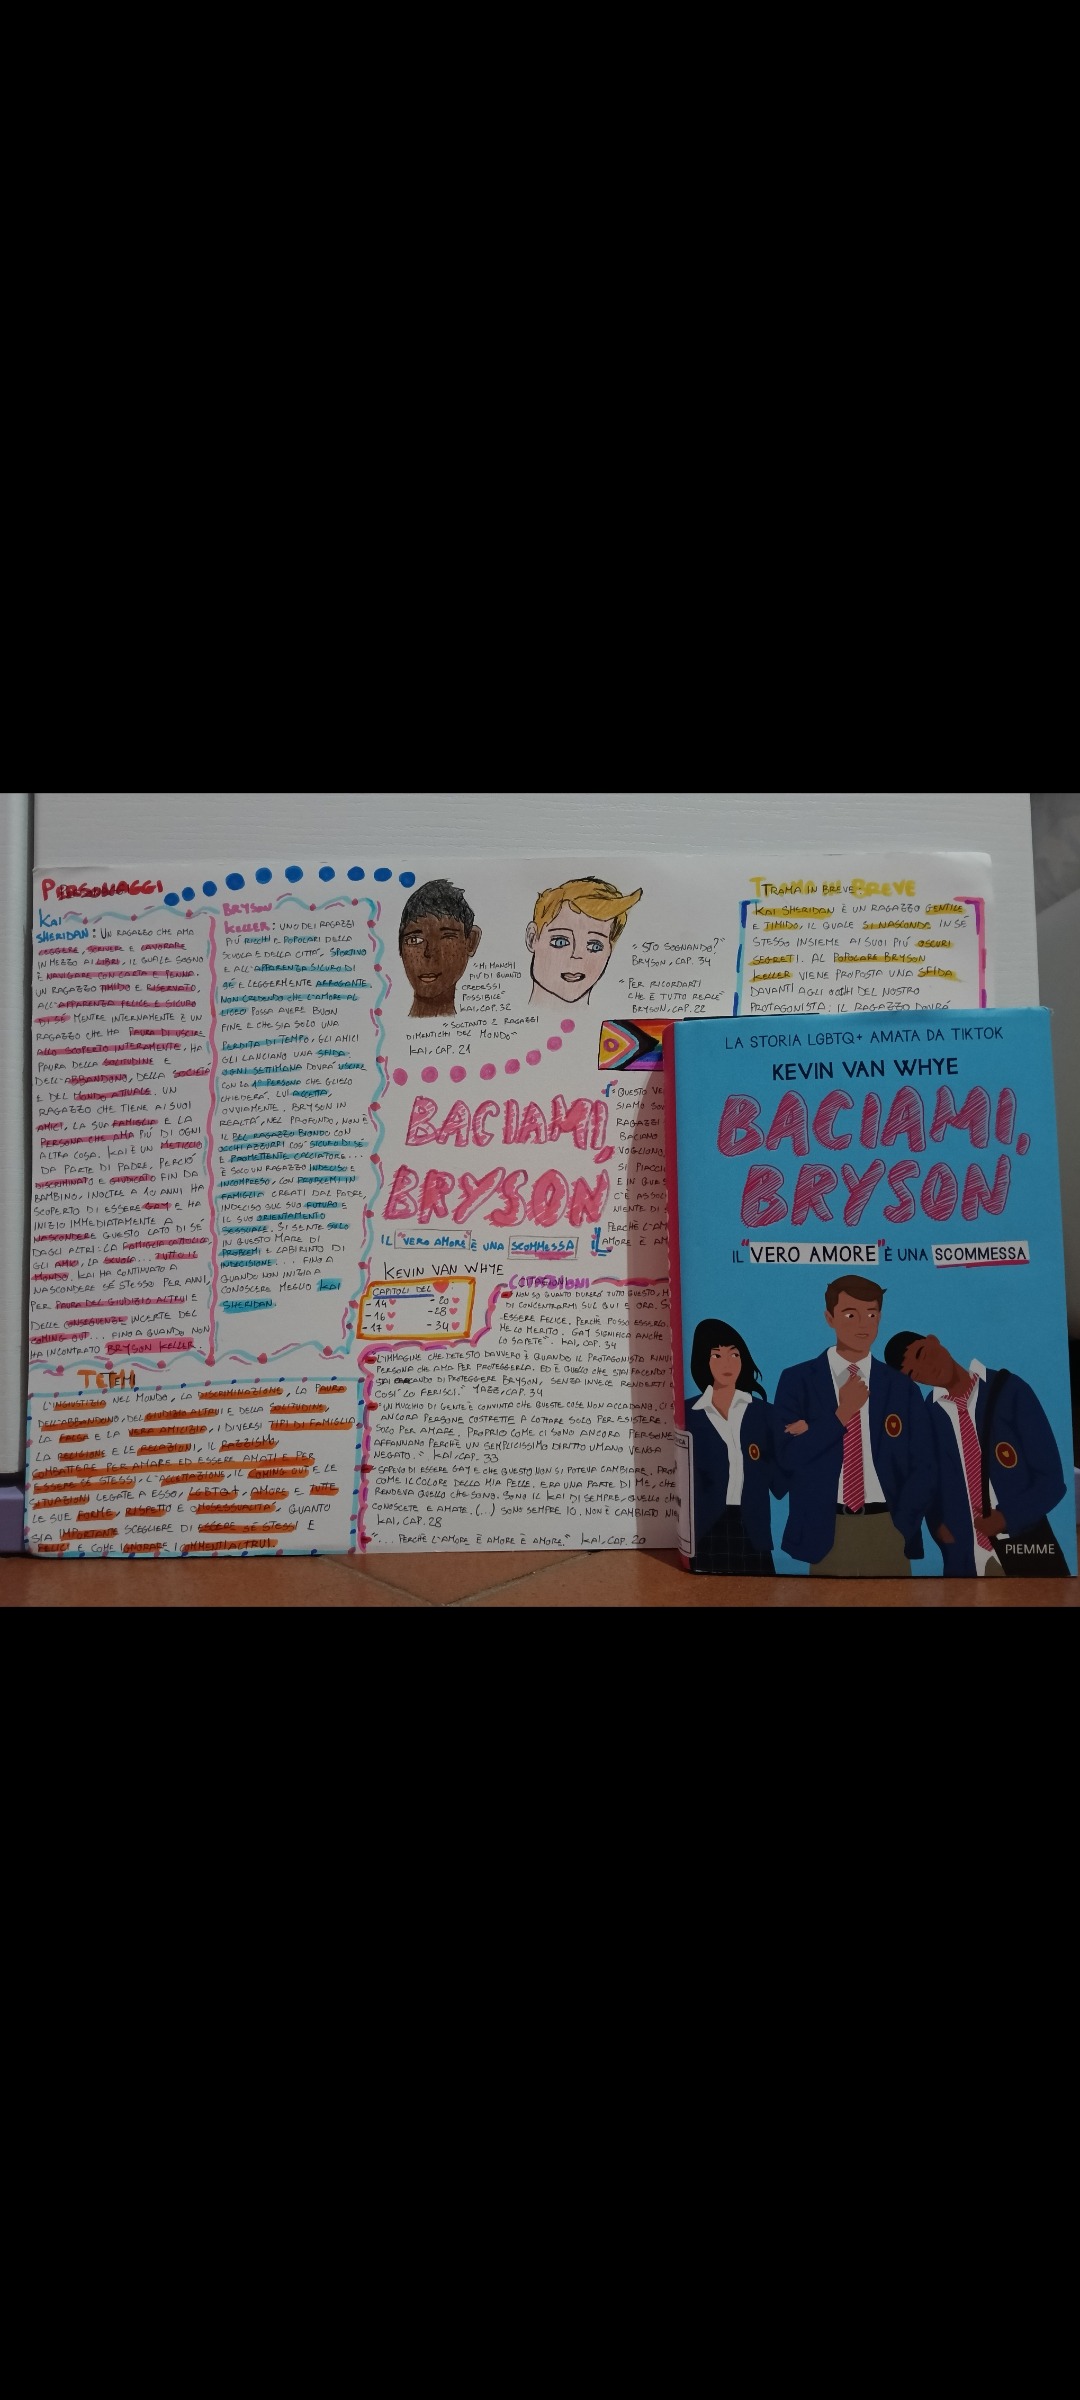 PERSONAGGI
KAI
SHERIDAN: UN RAGAZZO CHE AMA
LEGGERE, SCRIVERE E LAVORARE
IN MEZZO AI LIBRI, IL QUALE SOGNO
È NAVIGARE CON CARTA E PENNA.
UN RAGAZZO TIMIDO E RISERVATO,
ALL'APPARENZA FELICE E SICURO
DI SÉ MENTRE INTERNAMENTE È UN
RAGAZZO CHE HA PAURA DI USCIRE
ALLO SCOPERTO INTERAMENTE, HA
PAURA DELLA SOLITUDINE E
DELL'ABBANDONO, DELLA SOCIETÀ
E DEL MONDO ATTUALE. UN
RAGAZZO CHE TIENE AI SUOI
AMICI, LA SUA FAMIGLIA E LA
PERSONA CHE AMA PIÚ DI OGNI
ALTRA COSA. KAI È UN METICCIO
DA PARTE DI PADRE, PERCIÓ
DISCRIMINATO E GIUDICATO FIN DA
BAMBINO, INOLTRE A 10 ANNI HA
SCOPERTO DI ESSERE GAY E HA
INIZIO IMMEDIATAMENTE A
NASCONDERE QUESTO LATO DI SÉ
DAGLI ALTRI: LA FAMIGLIA CATTOLICA,
GLI AMICI, LA SCUOLA... TUTTO IL
MONDO. KAI HA CONTINUATO A
NASCONDERE SÉ STESSO PER ANNI,
PER PAURA DEL GIUDIZIO ALTRUI E
DELLE CONSEGUENZE INCERTE DEL
COMING OUT... FINO A QUANDO NON
HA INCONTRATO BRYSON KELLER.
BRYSON
KELLER: UNO DEI RAGAZZI
PIÚ RICCHI E POPOLARI DELLA
SCUOLA E DELLA CITTÀ, SPORTIVO
E ALL'APPARENZA SICURO DI
SÉ E LEGGERMENTE ARROGANTE.
NON CREDENDO CHE L'AMORE AL
LICEO POSSA AVERE BUON
FINE E CHE SIA SOLO UNA
PERDITA DI TEMPO, GLI AMICI
GLI LANCIANO UNA SFIDA:
OGNI SETTIMANA DOVRÀ USCIRE
CON LA 1ª PERSONA CHE GLIELO
CHIEDERÀ. LUI ACCETTA,
OVVIAMENTE. BRYSON IN
REALTÀ, NEL PROFONDO, NON È
IL BEL RAGAZZO BIONDO CON
OCCHI AZZURRI COSÍ SICURO DI SÉ
E PROMETTENTE CALCIATORE...
È SOLO UN RAGAZZO INDECISO E
INCOMPRESO, CON PROBLEMI IN
FAMIGLIA CREATI DAL PADRE,
INDECISO SUL SUO FUTURO E
IL SUO ORIENTAMENTO
SESSUALE. SI SENTE SOLO
IN QUESTO MARE DI
PROBLEMI E LABIRINTO DI
INDECISIONE... FINO A
QUANDO NON INIZIA A
CONOSCERE MEGLIO KAI
SHERIDAN.
TEMI
L'INGIUSTIZIA NEL MONDO, LA DISCRIMINAZIONE, LA PAURA
DELL'ABBANDONO, DEL GIUDIZIO ALTRUI E DELLA SOLITUDINE,
LA FORZA E LA VERA AMICIZIA, I DIVERSI TIPI DI FAMIGLIA,
LA RELIGIONE E LE RELAZIONI, IL RAZZISMO,
COMBATTERE PER AMARE ED ESSERE AMATI E PER
ESSERE SÉ STESSI, L'ACCETTAZIONE, IL COMING OUT E LE
SITUAZIONI LEGATE A ESSO, LGBTQ+, AMORE E TUTTE
LE SUE FORME, RISPETTO E OMOSESSUALITÀ, QUANTO
SIA IMPORTANTE SCEGLIERE DI ESSERE SÉ STESSI E
FELICI E COME IGNORARE I COMMENTI ALTRUI.
"MI MANCHI
PIÚ DI QUANTO
CREDESSI
POSSIBILE"
KAI, CAP. 32
"SOLTANTO 2 RAGAZZI
DIMENTICHI DEL MONDO"
KAI, CAP. 21
"STO SOGNANDO?"
BRYSON, CAP. 34
"PER RICORDARTI
CHE È TUTTO REALE"
BRYSON, CAP. 22
BACIAMI,
BRYSON
IL "VERO AMORE" È UNA SCOMMESSA
KEVIN VAN WHYE
CAPITOLI DEL
- 14 - 20
- 16 - 28
- 17 - 34
TRAMA IN BREVE
KAI SHERIDAN È UN RAGAZZO GENTILE
E TIMIDO, IL QUALE SI NASCONDE IN SÉ
STESSO INSIEME AI SUOI PIÚ OSCURI
SEGRETI. AL POPOLARE BRYSON
KELLER VIENE PROPOSTA UNA SFIDA
DAVANTI AGLI OCCHI DEL NOSTRO
PROTAGONISTA: IL RAGAZZO DOVRÁ
QUESTO
SIAMO
RAGAZZI
BACIANO
VOGLIONO,
SI
E IN
C'È
NIENTE DI
PERCHÈ
AMORE È
CITAZIONI
NON SO QUANTO DURERÀ TUTTO QUESTO,
DI CONCENTRARMI SUL QUI E ORA.
ESSERE FELICE. PERCHÈ POSSO ESSERLO.
ME LO MERITO. GAY SIGNIFICA ANCHE
LO SAPETE". KAI, CAP. 34
"L'IMMAGINE CHE DETESTO DAVVERO È QUANDO IL PROTAGONISTA
PERSONA CHE AMA PER PROTEGGERLA. ED È QUELLO CHE STAI FACENDO
STAI CERCANDO DI PROTEGGERE BRYSON, SENZA INVECE RENDERTI
COSÍ LO FERISCI." MAZZ, CAP. 34
"UN MUCCHIO DI GENTE È CONVINTA CHE QUESTE COSE NON ACCADANO. CI
ANCORA PERSONE COSTRETTE A LOTTARE SOLO PER ESISTERE.
SOLO PER AMARE. PROPRIO COME CI SONO ANCORA PERSONE
AFFANNANO PERCHÈ UN SEMPLICISSIMO DIRITTO UMANO VENGA
NEGATO." KAI, CAP. 33
"SAPEVO DI ESSERE GAY E CHE QUESTO NON SI POTEVA CAMBIARE.
COME IL COLORE DELLA MIA PELLE. ERA UNA PARTE DI ME, CHE
RENDEVA QUELLO CHE SONO. SONO IL KAI DI SEMPRE, QUELLO
CONOSCETE E AMATE. (...) SONO SEMPRE IO. NON È CAMBIATO
KAI, CAP. 28
"... PERCHÈ L'AMORE È AMORE È AMORE." KAI, CAP. 20
LA STORIA LGBTQ+ AMATA DA TIKTOK
KEVIN VAN WHYE
BACIAMI,
BRYSON
IL "VERO AMORE" È UNA SCOMMESSA
PIEMME